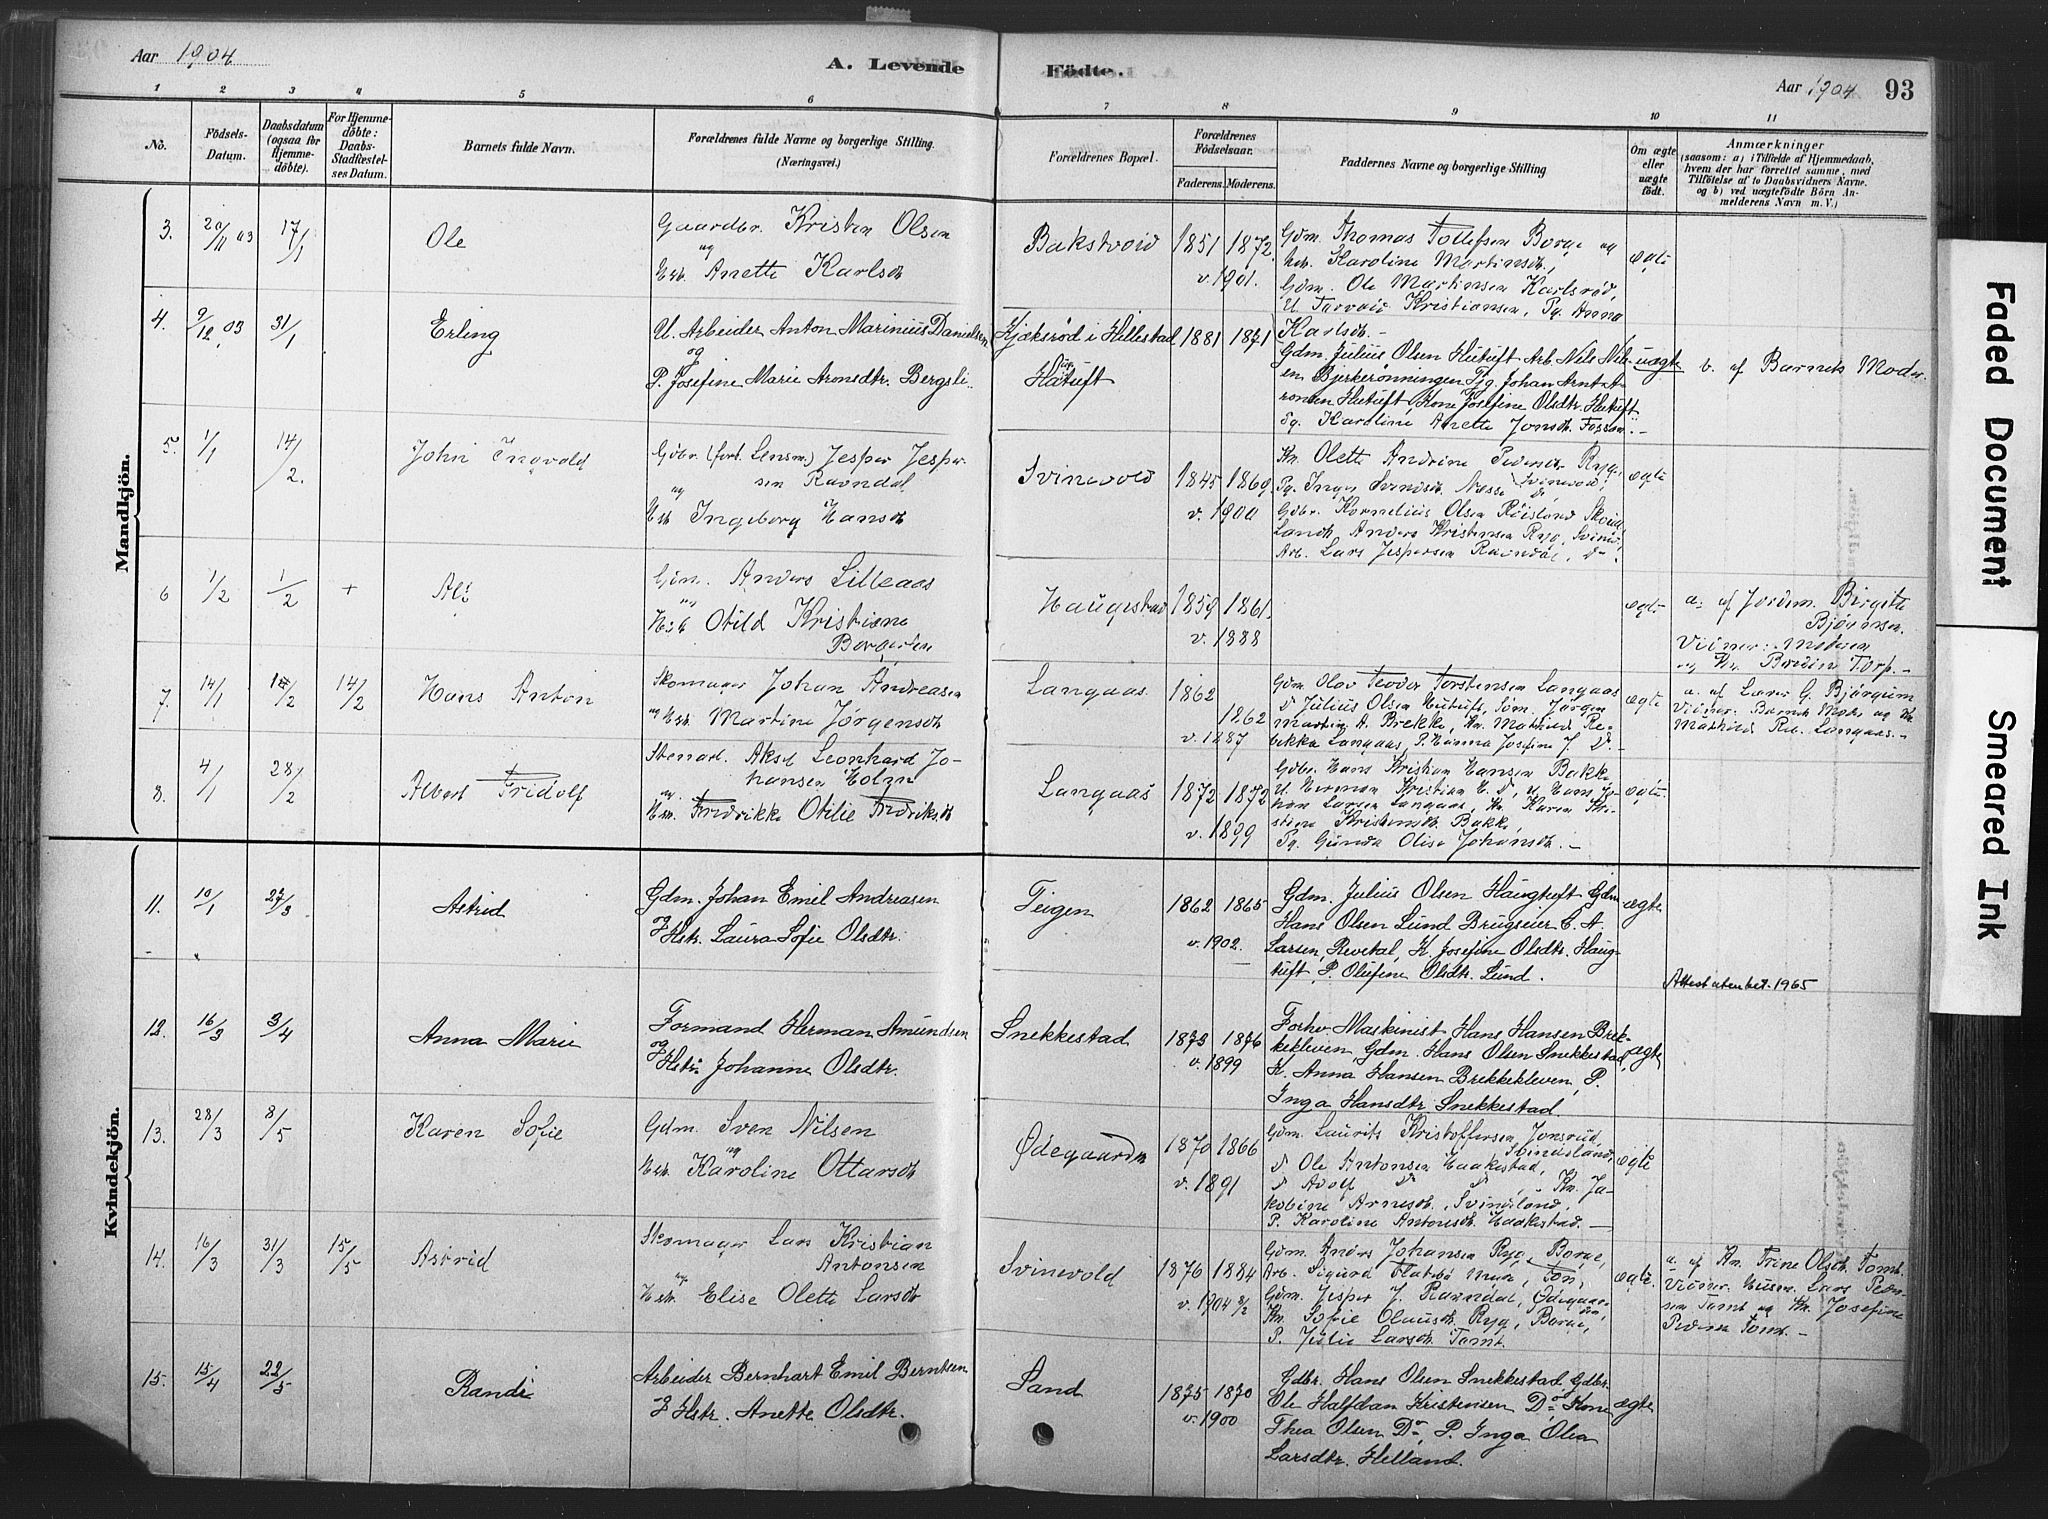 Aar 1904
A. Levende
Födte.
Aar 1904 93
1 2 3 4 5 6 7 8 9 10 11
No.
Födsels-
Datum.
Daabsdatum
(ogsaa for
Hjemme-
döbte).
For Hjemme-
döbte:
Daabs-
Stadfæstel-
ses Datum.
Barnets fulde Navn.
Forældrenes fulde Navne og borgerlige Stilling.
(Næringsvei.)
Forældrenes Bopæl.
Forældrenes
Födselsaar.
Faderens. Moderens.
Faddernes Navne og borgerlige Stilling
Om ægte
eller
uægte
födt.
Anmærkninger
(saasom: a) i Tilfælde af Hjemmedaab,
hvem der har forrettet samme, med
Tilföielse af to Daabsvidners Navne.
og b) ved uægtefödte Börn An-
melderens Navn m. V.)
Mandkjön.
3. 20/11 03 17/1 Ole
Gaardbr. Kristen Olsen
og
Hstr. Anette Karlsdt.
1851 1872
v. 1901.
Gdm. Thomas Tollefsen Borge og
Hstr. Karoline Martinsdt.,
Gdm. Ole Martinsen Karlsrød,
U. Torvald Kristiansen, Pg. Anna
Karlsdt. -
ægte
4. 9/12 03 31/1 Erling
U. Arbeider Anton Marinius Danielsen
og
P. Josefine Marie Aronsdtr. Bergsli
Kjæksrød i Hillestad
1881 1871
Gdm. Julius Olsen Hutuft Arb. Nils Nils-
en Bjerkerønningen Pjg. Johan Arnt A-
ronsen Hutuft, Kone Josefine Olsdtr. Hutuft
Pg. Karoline Anette Jonsdt. Fossan. -
uægte
b. af Barnets Moder.
5. 1/1 14/2. John Ingvold
Gdbr. (forh. Lensm.) Jesper Jesper-
sen Ravndal
og
Hstr. Ingeborg Hansdt.
Svinevold
1845 1869
v. 1900
Kn. Olette Andrine Pedersdt. Ryg,
Svinevold,
Gdbr. Kornelius Olsen Røisland
Landh. Anders Kristensen Ryg, Svinev.,
Arb. Lars Jespersen Ravndal, do.
ægte
6 1/2 1/2 + Alf
Gdm. Anders Lilleaas
og
Hstr. Otild Kristiane
Borgersen
Haugestad
1859 1861
v. 1888
ægte
a. af Jordem. Birgitte
Bjørnsen.
Vidner: Moderen
og Kn. Bredin Torp. -
7. 14/1 14/2 14/2 Hans Anton
Skomager Johan Andreasen
og Hstr. Martine Jørgensdt.
Langaas
1862
1862
v. 1887
Gdm. Olav Teodor Torstensen Langaas
do. Julius Olsen Hutuft, Tøm. Jørgen
Martin A. Brekke, Kn. Mathild Re-
bekka Langaas, P. Hanna Josefine J. do. -
ægte
a. af Lærer G. Bjørgum
Vidner. Barnets Moder og Kn.
Mathild Reb. Langaas. -
8. 4/1 28/2 Albert Fridolf
Stenarb. Aksel Leonhard Jo-
hansen Holm
og
Hstr. Fredrikke Otilie Fredriksdt.
Langaas
1872 1872
v. 1899
Gdbr. Hans Kristian Hansen Bakke,
U. Herman Kristian H. do., U. Hans Jo-
han Larsen Langaas, Kn. Karen Kri-
stine Kristensdt. Bakke,
Pg. Gunda Olise Johansdt. -
ægte.
Kvindekjön.
11. 10/1 27/3 Astrid
Gdm. Johan Emil Andreasen
og Hstr. Laura Sofie Olsdtr.
Teigen
1862 1865
v. 1902.
Gdm. Julius Olsen Haugtuft Gdm.
Hans Olsen Lund Brugseier C. A.
Larsen, Revetal, K. Josefine Olsdtr. Haug-
tuft, P. Olufine Olsdtr. Lund.
ægte
Attest utenbet. 1965
12. 16/3 3/4 Anna Marie
Formand Herman Amundsen
og Hstr. Johanne Olsdtr.
Snekkestad
1873 1876
v. 1899
Forhv. Maskinist Hans Hansen Brek-
kekleven, Gdm. Hans Olsen Snekkestad,
K. Anna Hansen Brekkekleven, P.
Inga Hansdtr. Snekkestad
ægte
13. 28/3 8/5 Karen Sofie
Gdm. Sven Nilsen
og
Hstr. Karoline Ottarsdt.
Ødegaarden
1870 1866
v. 1891
Gdm. Laurits Kristoffersen Jonsrud,
Svindsland,
do. Ole Antonsen Haakestad,
do. Adolf do. do. Kn. Ja-
kobine Arnesdt., Svindsland,
P. Karoline Antonsdt. Haakestad. -
ægte
14. 16/3 31/3 15/5 Astrid
Skomager Lars Kristian
Antonsen
og
Hstr. Elise Olette Larsdt.
Svinevold
1876 1884
v. 1904 8/2
Gdm. Anders Johansen Ryg, Borge,
Arb. Sigurd
Gdm. Jesper J. Ravndal, Ødegaar-
den
Kn. Sofie Olausdt. Ryg, Borge,
P. Julie Larsdt. Tomt.
ægte.
a. af Kn. Trine Olsdt. Tomt.
Vidner. Husm. Lars Peder-
sen Tomt og Kn. Josefine
Pedersen Tomt. -
15. 15/4 22/5 Randi
Arbeider Bernhart Emil Berntsen
og Hstr. Anette Olsdtr.
Sand
1875 1870
v. 1900
Gdbr. Hans Olsen Snekkestad, Gdbr.
Ole Halfdan Kristensen Do. Kone
Thea Olsen Do., P. Inga Olea
Larsdtr. Helland.
ægte
Faded Document
Smeared Ink